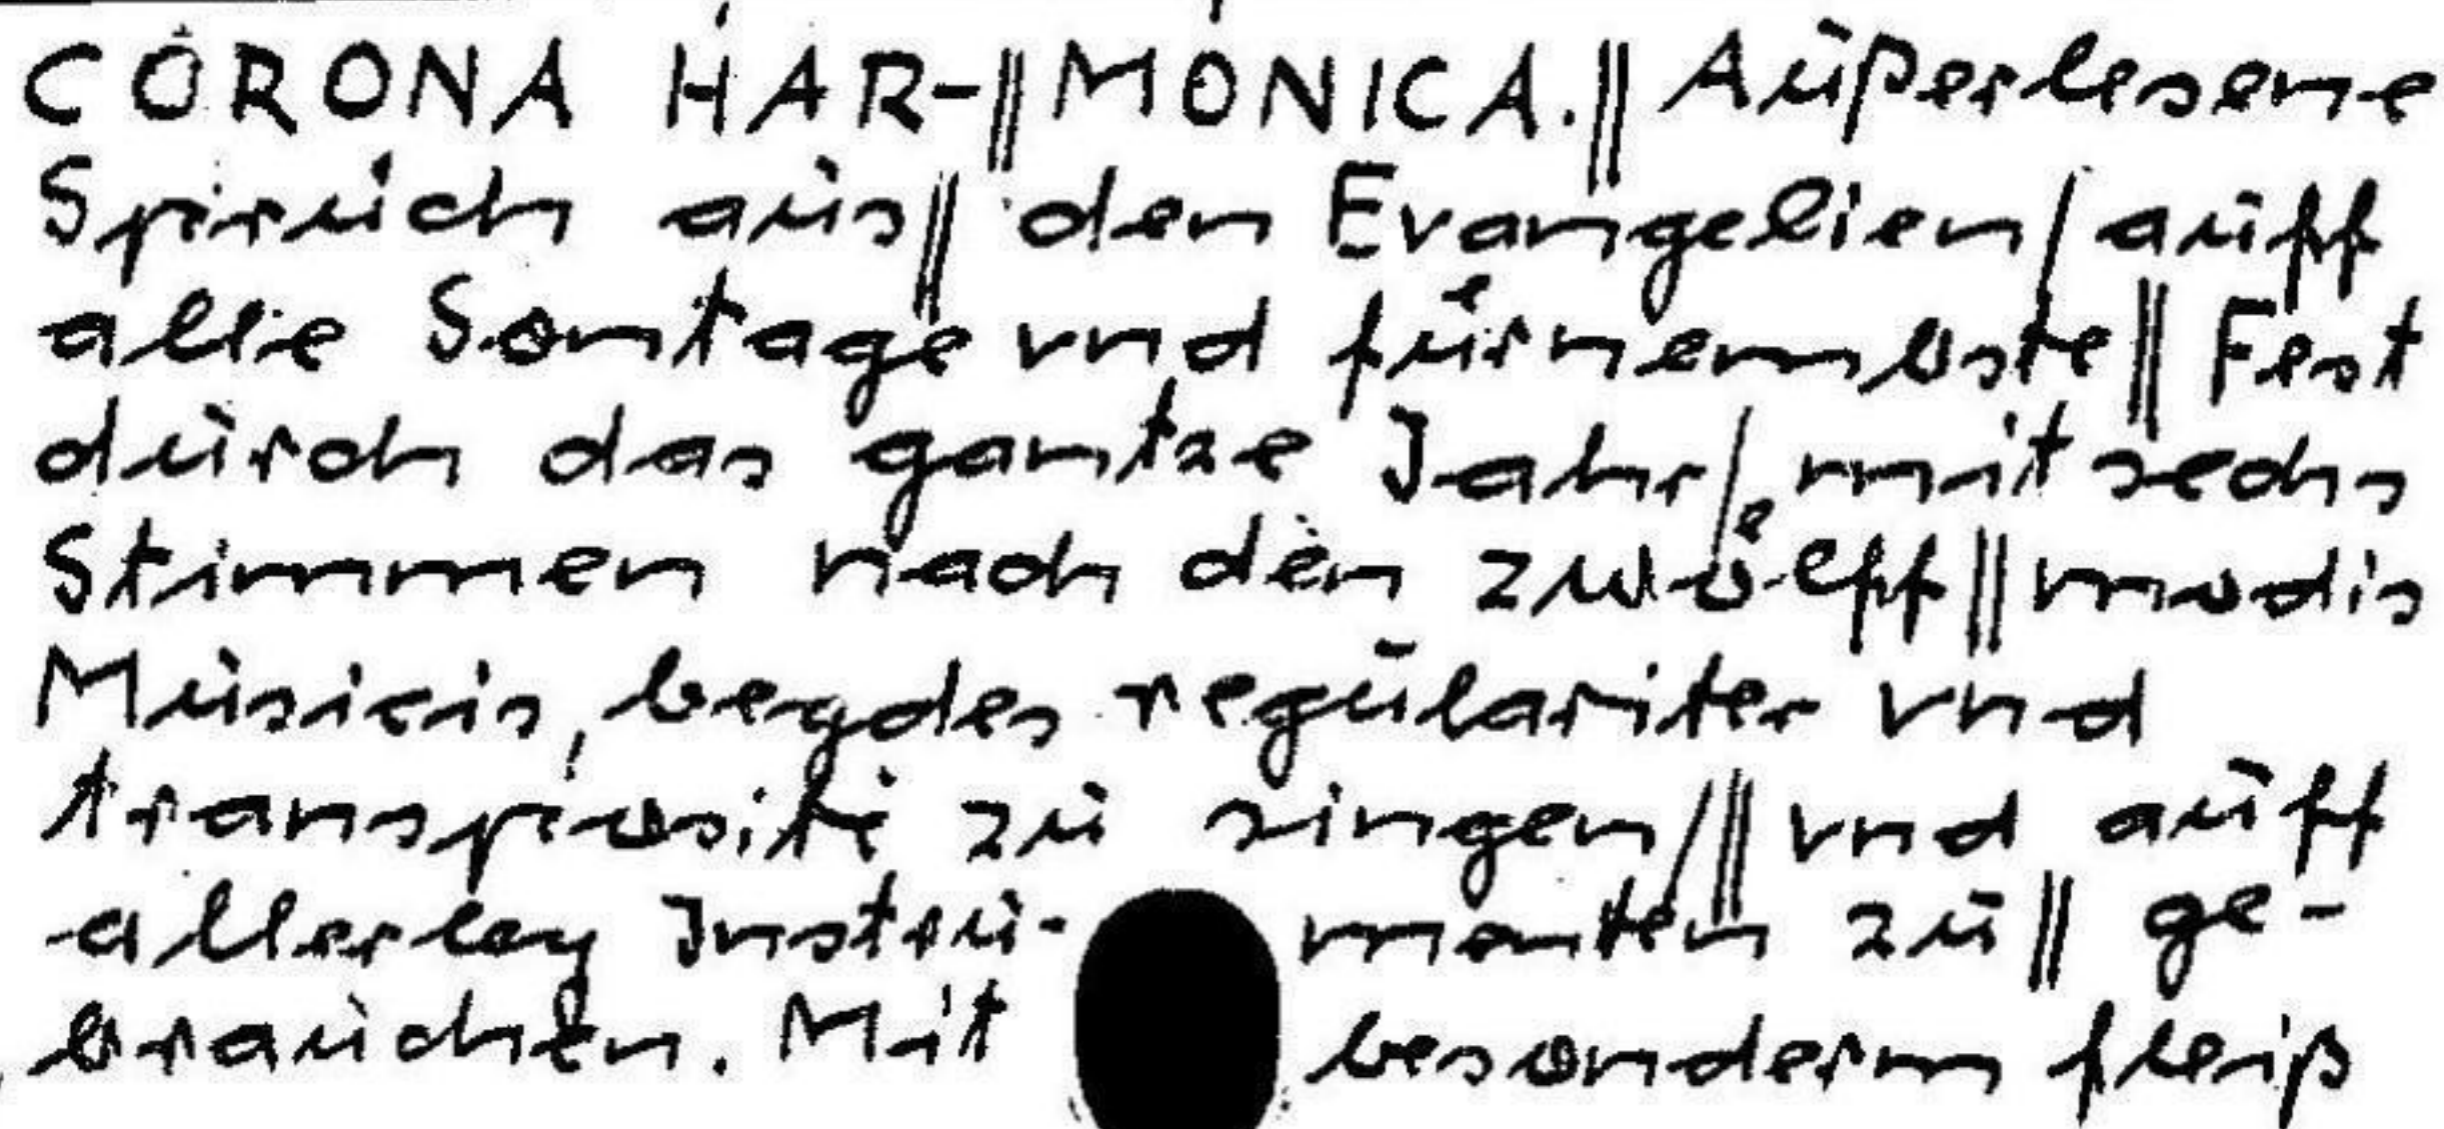 CORONA HAR-||MONICA.|| Außerlesene
Spruch aus|| den Evangelien/ auff
alle Sontage vnd fuͤrnembste|| Fest
durch das gantze Jahr/ mit sechs
Stimmen nach den zwoͤlff|| modis
Musicis, beydes regulariter vnd
transposite zu singen/|| vnd auff
allerley Instru- menten zu|| ge-
brauchen. Mit besonderm fleiß